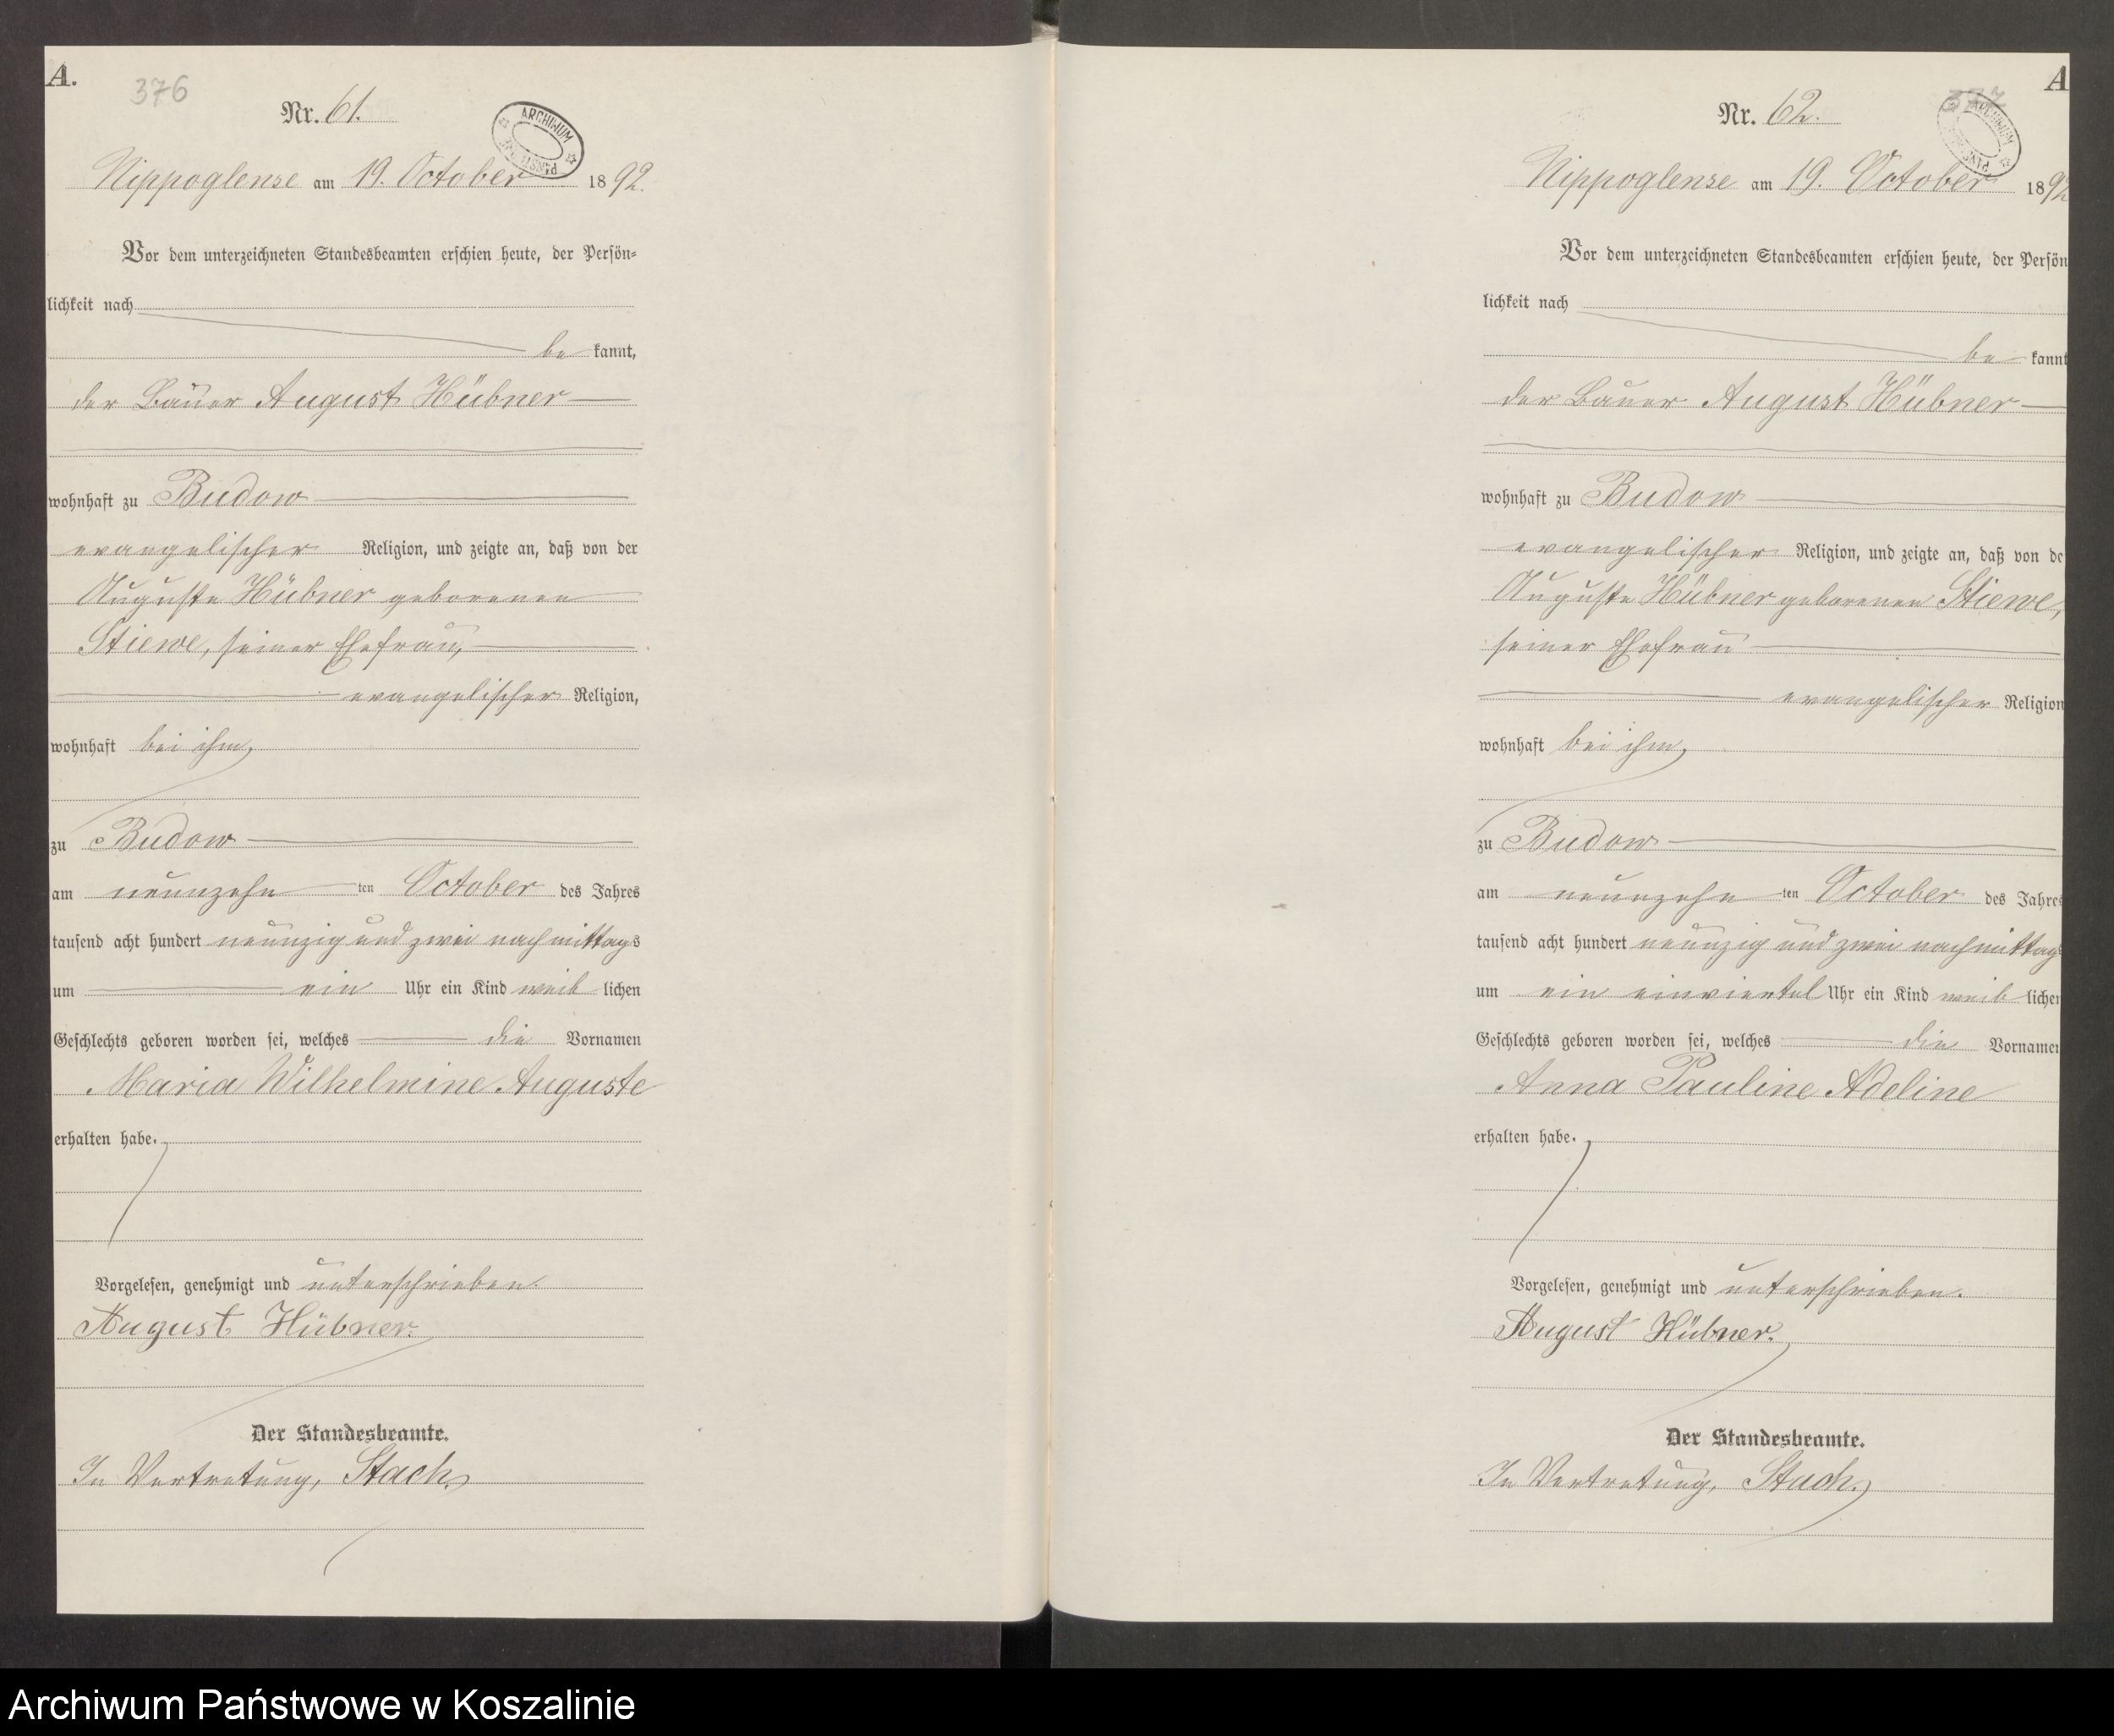 A.
376
Nr. 61.
ARCHIWUM
Nippoglense am 19. October 1892.
Vor dem unterzeichneten Standesbeamten erschien heute, der Persön=
lichkeit nach
be kannt,
der Bauer August Hübner
wohnhaft zu Budow
evangelischer Religion, und zeigte an, daß von der
Auguste Hübner geborenen
Stiewe, seiner Ehefrau,
evangelischer Religion,
wohnhaft bei ihm,
zu Budow
am neunzehn ten October des Jahres
tausend acht hundert neunzig und zwei nachmittags
um ein Uhr ein Kind weib lichen
Geschlechts geboren worden sei, welches die Vornamen
Maria Wilhelmine Auguste
erhalten habe.
Vorgelesen, genehmigt und unterschrieben.
August Hübner.
Der Standesbeamte.
In Vertretung, Stach.
A
377
Nr. 62.
ARCHIWUM
Nippoglense am 19. October 1892
Vor dem unterzeichneten Standesbeamten erschien heute, der Persön
lichkeit nach
be kannt
der Bauer August Hübner
wohnhaft zu Budow
evangelischer Religion, und zeigte an, daß von de
Auguste Hübner geborenen Stiewe,
seiner Ehefrau
evangelischer Religion
wohnhaft bei ihm,
zu Budow
am neunzehn ten October des Jahres
tausend acht hundert neunzig und zwei nachmittags
um ein einviertel Uhr ein Kind weib lichen
Geschlechts geboren worden sei, welches die Vornamen
Anna Pauline Adeline
erhalten habe.
Vorgelesen, genehmigt und unterschrieben.
August Hübner.
Der Standesbeamte.
In Vertretung, Stach.
Archiwum Państwowe w Koszalinie